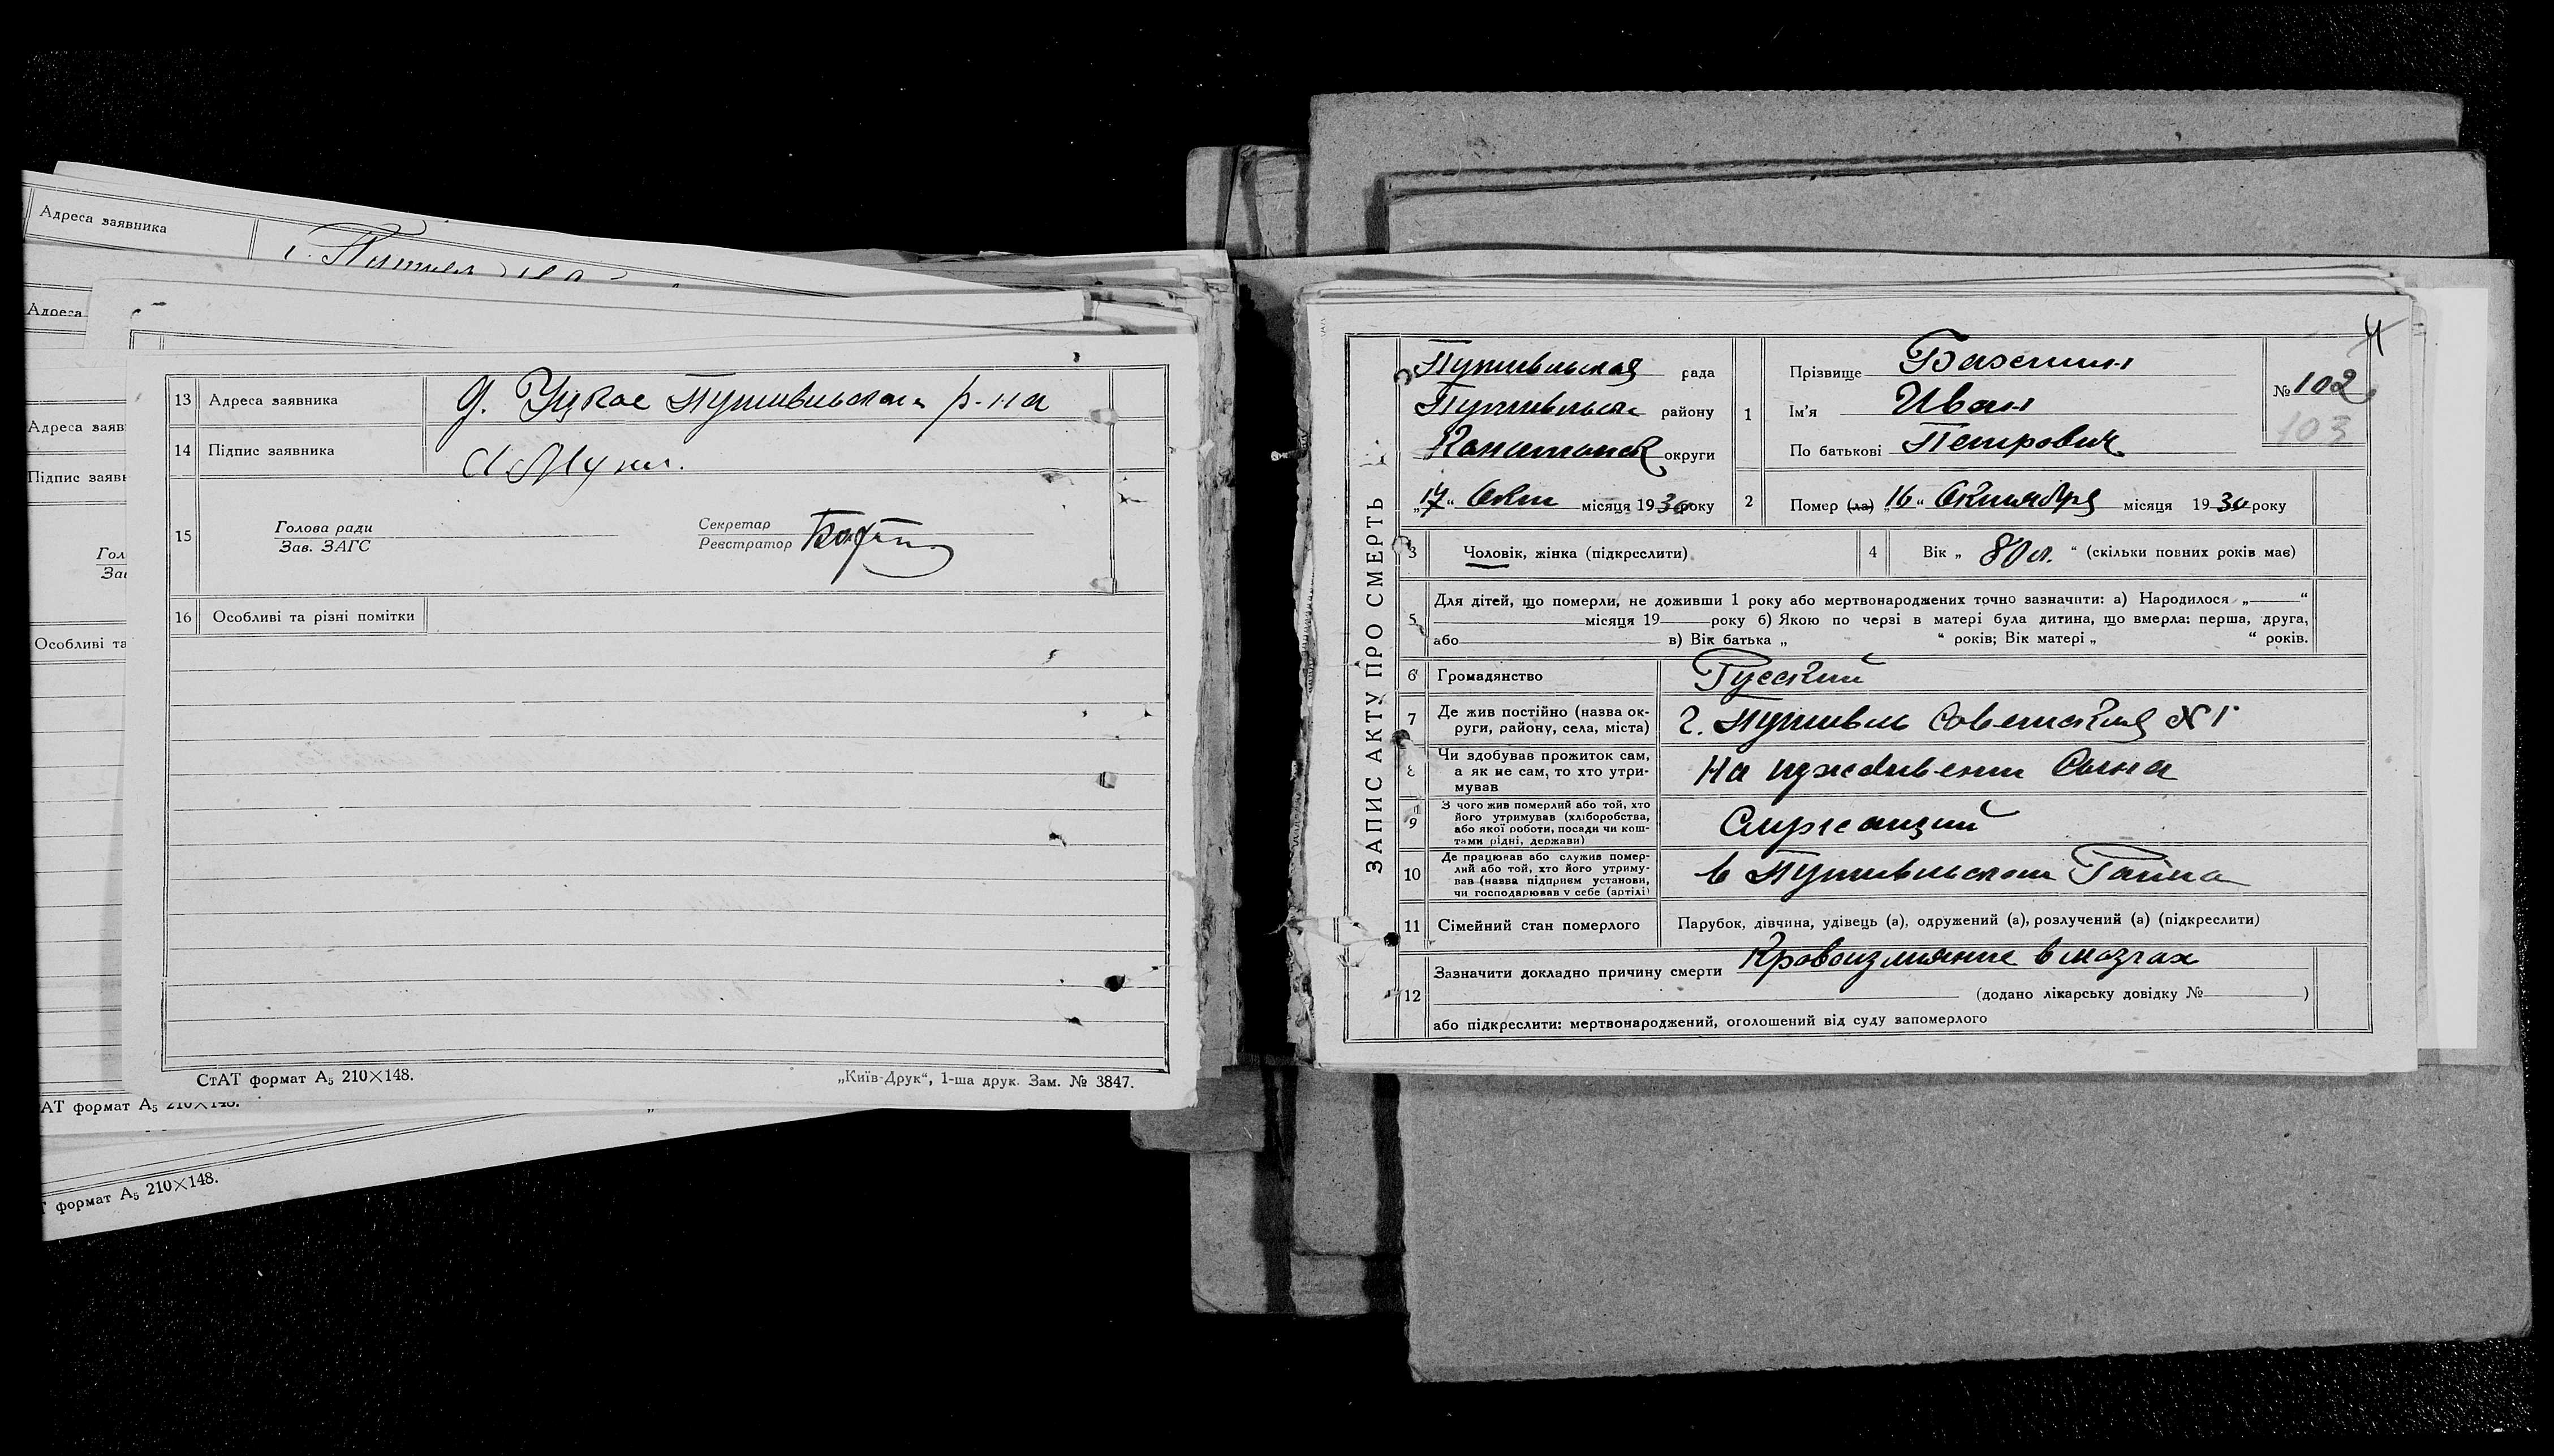 Адреса заявника
Адреса
Адреса заяв
Підпис заявн
Гол
Зав
Особливі та
13 Адреса заявника д. Уцкое Путивльского р-на
14 Підпис заявника
15 Голова ради
Зав. ЗАГС
Секретар
Реєстратор
16 Особливі та різні помітки
СтАТ формат А5 210×148.
„Київ-Друк“, 1-ша друк. Зам. № 3847.
АТ формат А5 210×148.
Т формат А5 210×148.
ЗАПИС АКТУ ПРО СМЕРТЬ
Путивльская рада
Путивльск району
Конотопск округи
„17“ Окт місяця 1930 року
1 Прізвище Бажинин
Ім'я Иван
По батькові Петрович
№ 102
103
2 Помер (ла) „16“ Октября місяця 1930 року
3 Чоловік, жінка (підкреслити)
4 Вік „ 80 л. “ (скільки повних років має)
5 Для дітей, що померли, не доживши 1 року або мертвонароджених точно зазначити: а) Народилося „ “
місяця 19 року б) Якою по черзі в матері була дитина, що вмерла: перша, друга,
або в) Вік батька „ “ років; Вік матері „ “ років.
6 Громадянство Русский
7 Де жив постійно (назва ок-
руги, району, села, міста) г. Путивль Советская № 1
8 Чи здобував прожиток сам,
а як не сам, то хто утри-
мував На иждивении Сына
9 З чого жив померлий або той, хто
його утримував (хліборобства,
або якої роботи, посади чи кош-
тами рідні, держави) Служащий
10 Де працював або служив помер-
лий або той, хто його утриму-
вав (назва підприєм установи,
чи господарював у себе (артілі) в Путивльском
11 Сімейний стан померлого Парубок, дівчина, удівець (а), одружений (а), розлучений (а) (підкреслити)
12 Зазначити докладно причину смерти Кровоизлияние в мозгах
(додано лікарську довідку № )
або підкреслити: мертвонароджений, оголошений від суду запомерлого